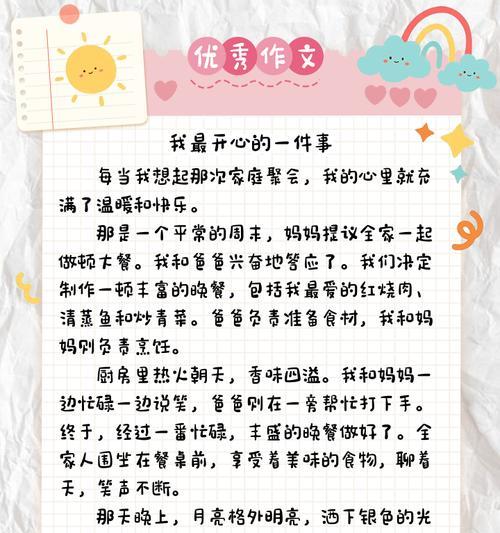 优秀作文
我最开心的一件事
每当我想起那次家庭聚会，我的心里就充
满了温暖和快乐。
那是一个平常的周末，妈妈提议全家一起
做顿大餐。我和爸爸兴奋地答应了。我们决定
制作一顿丰富的晚餐，包括我最爱的红烧肉、
清蒸鱼和炒青菜。爸爸负责准备食材，我和妈
妈则负责烹饪。
厨房里热火朝天，香味四溢。我和妈妈一
边忙碌一边说笑，爸爸则在一旁帮忙打下手。
终于，经过一番忙碌，丰盛的晚餐做好了。全
家人围坐在餐桌前，享受着美味的食物，聊着
天，笑声不断。
那天晚上，月亮格外明亮，洒下银色的光